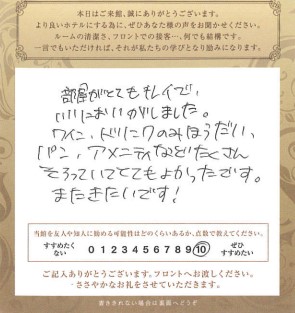 本日はご来館、誠にありがとうございます。
より良いホテルにする為に、ぜひあなた様の声をお聞かせください。
ルームの清潔さ、フロントでの接客…、何でも結構です。
一言でもいただければ、それが私たちの学びとなり励みになります。
部屋がとてもキレイで、
いいにおいがしました。
ワイン、ドリンクのみほうだい、
パン、アメニティなどたくさん
そろっていてとてもよかったです。
またきたいです！
当館を友人や知人に勧める可能性はどのくらいあるか、点数で教えてください。
すすめたくない 0 1 2 3 4 5 6 7 8 9 10 ぜひすすめたい
ご記入ありがとうございます。フロントへお渡しください。
ささやかなお礼をさせていただきます。
書ききれない場合は裏面へどうぞ